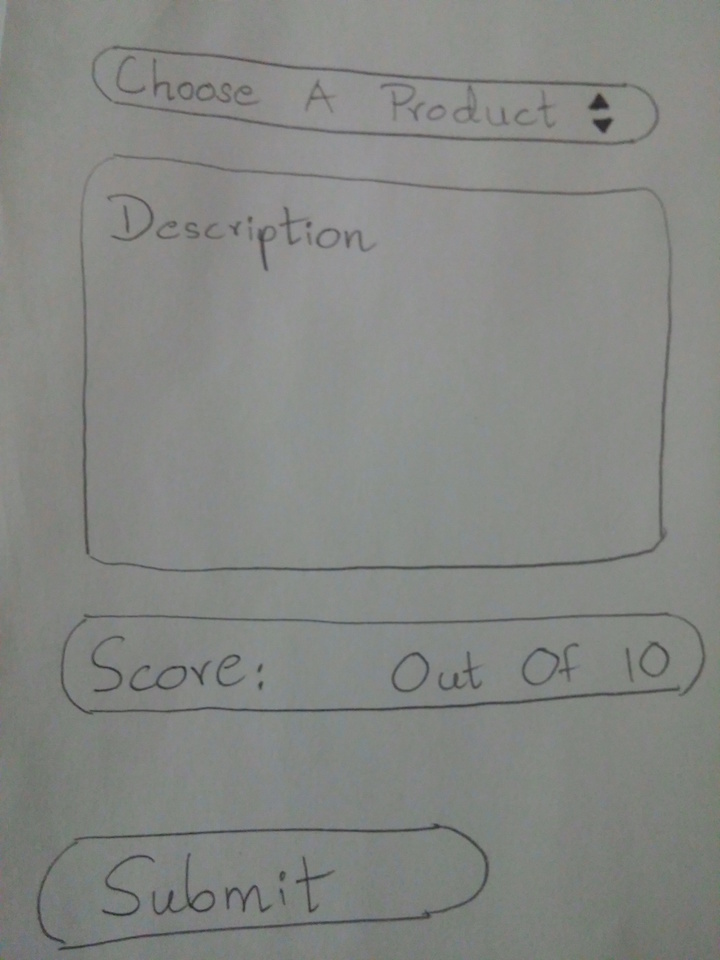 Choose A Product
Description
Score: Out Of 10
Submit